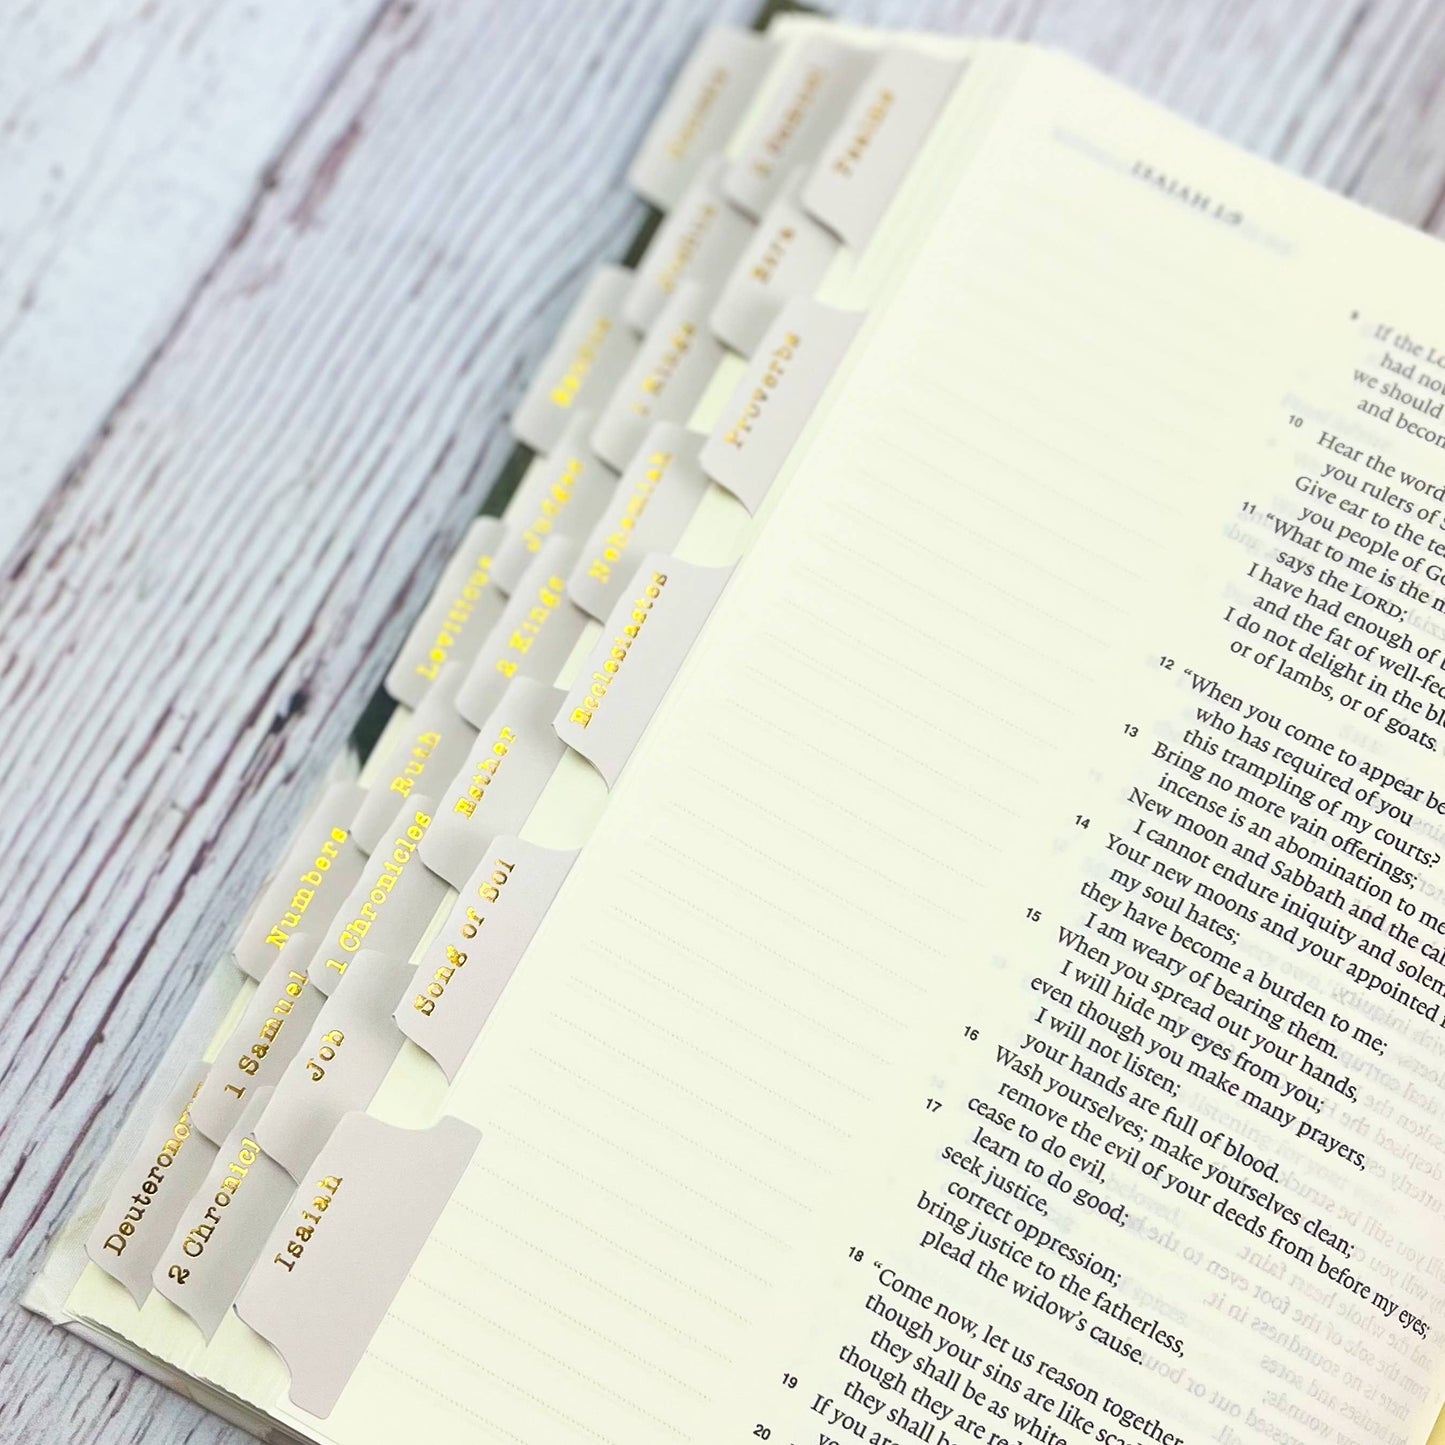 Genesis
2 Samuel
Psalms
Joshua
Ezra
Exodus
1 Kings
Proverbs
Judges
Nehemiah
Leviticus
2 Kings
Ecclesiastes
Ruth
Esther
Numbers
1 Chronicles
Song of Sol
1 Samuel
Job
Deuteronomy
2 Chronicl
Isaiah
ISAIAH 1:9
9 If the Lo
had not
we should
and becom
10 Hear the word
you rulers of S
Give ear to the te
you people of Go
11 "What to me is the m
says the LORD;
I have had enough of b
and the fat of well-fed
I do not delight in the blo
or of lambs, or of goats.
12 "When you come to appear be
who has required of you
this trampling of my courts?
13 Bring no more vain offerings;
incense is an abomination to me
New moon and Sabbath and the cal
I cannot endure iniquity and solem
14 Your new moons and your appointed
my soul hates;
they have become a burden to me;
I am weary of bearing them.
15 When you spread out your hands,
I will hide my eyes from you;
even though you make many prayers,
I will not listen;
your hands are full of blood.
16 Wash yourselves; make yourselves clean;
remove the evil of your deeds from before my eyes;
cease to do evil,
17 learn to do good;
seek justice,
correct oppression;
bring justice to the fatherless,
plead the widow's cause.
18 "Come now, let us reason together
though your sins are like sca
they shall be as white
though they are red
they shall b
19 If you are
20